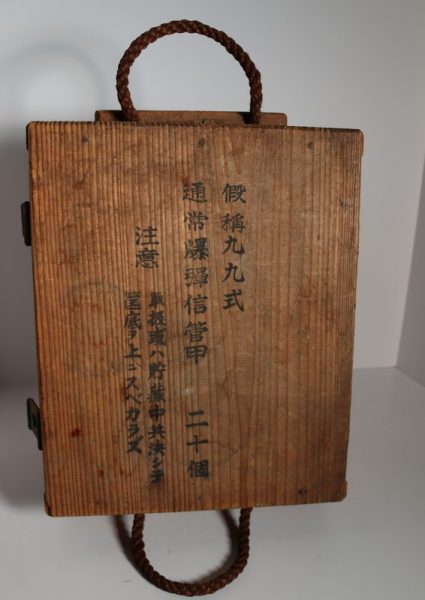 假稱九九式
通常爆彈信管甲 二十個
注意
取扱或ハ貯藏中共決シテ
筐底ヲ上ニスベカラズ